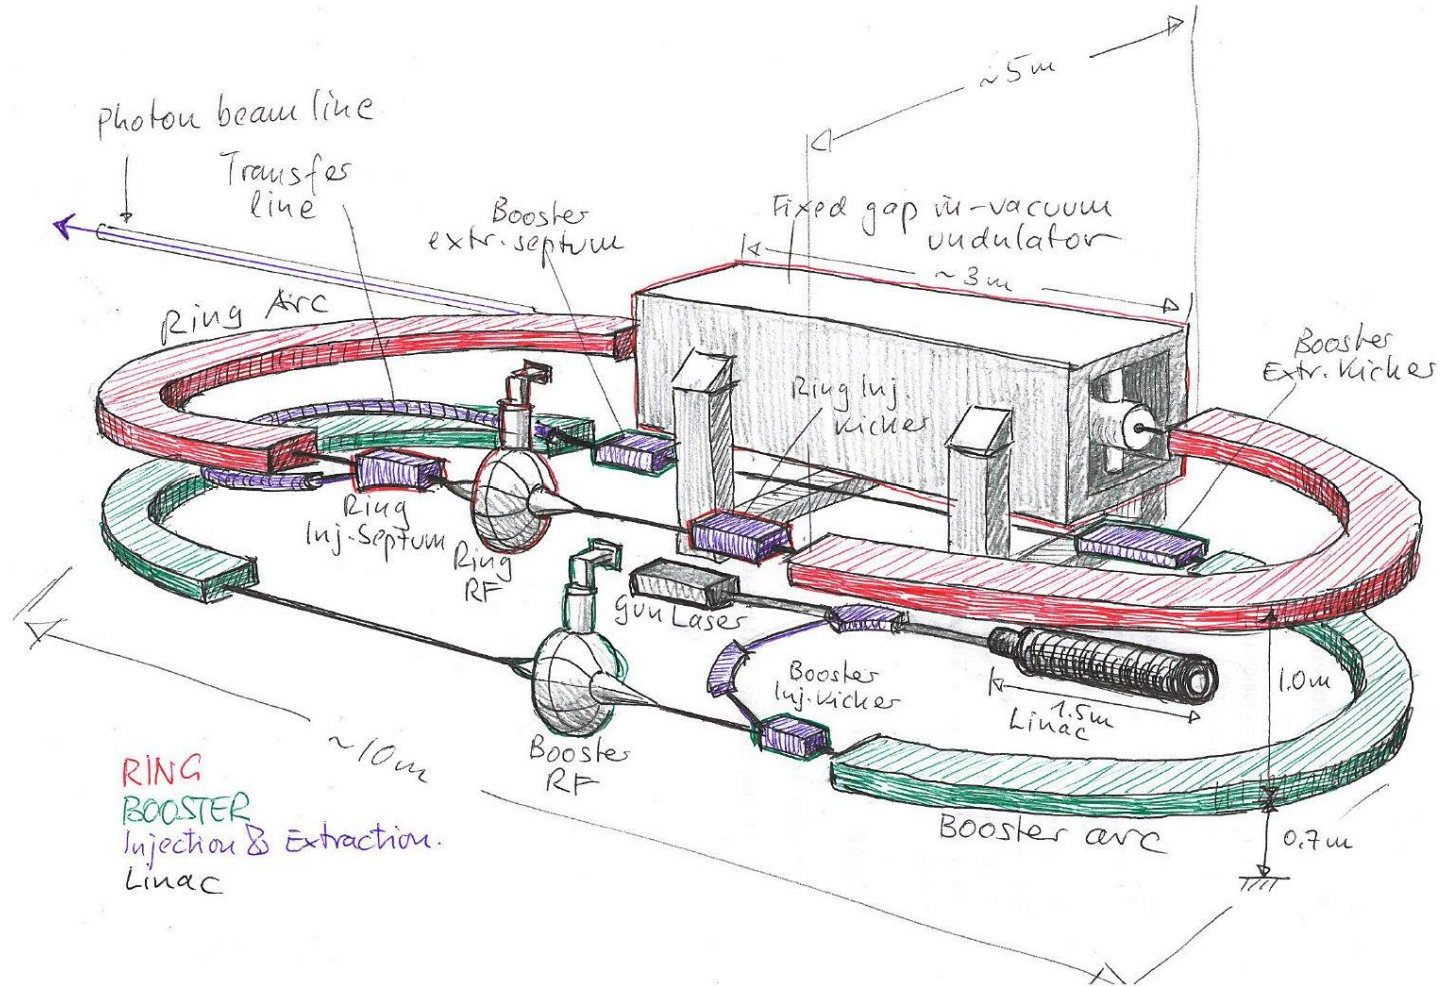 ~5m
Photon beam line
Transfer
line
Booster
extr. septum
Fixed gap in-vacuum
undulator
~3m
Ring Arc
Booster
Extr. Kicker
Ring Inj.
Kicker
Ring
Inj. Septum
Ring
RF
Gun Laser
Booster
Inj. Kicker
1.5m
Linac
1.0m
~10m
Booster
RF
RING
BOOSTER
Injection & Extraction.
Linac
Booster arc
0.7m